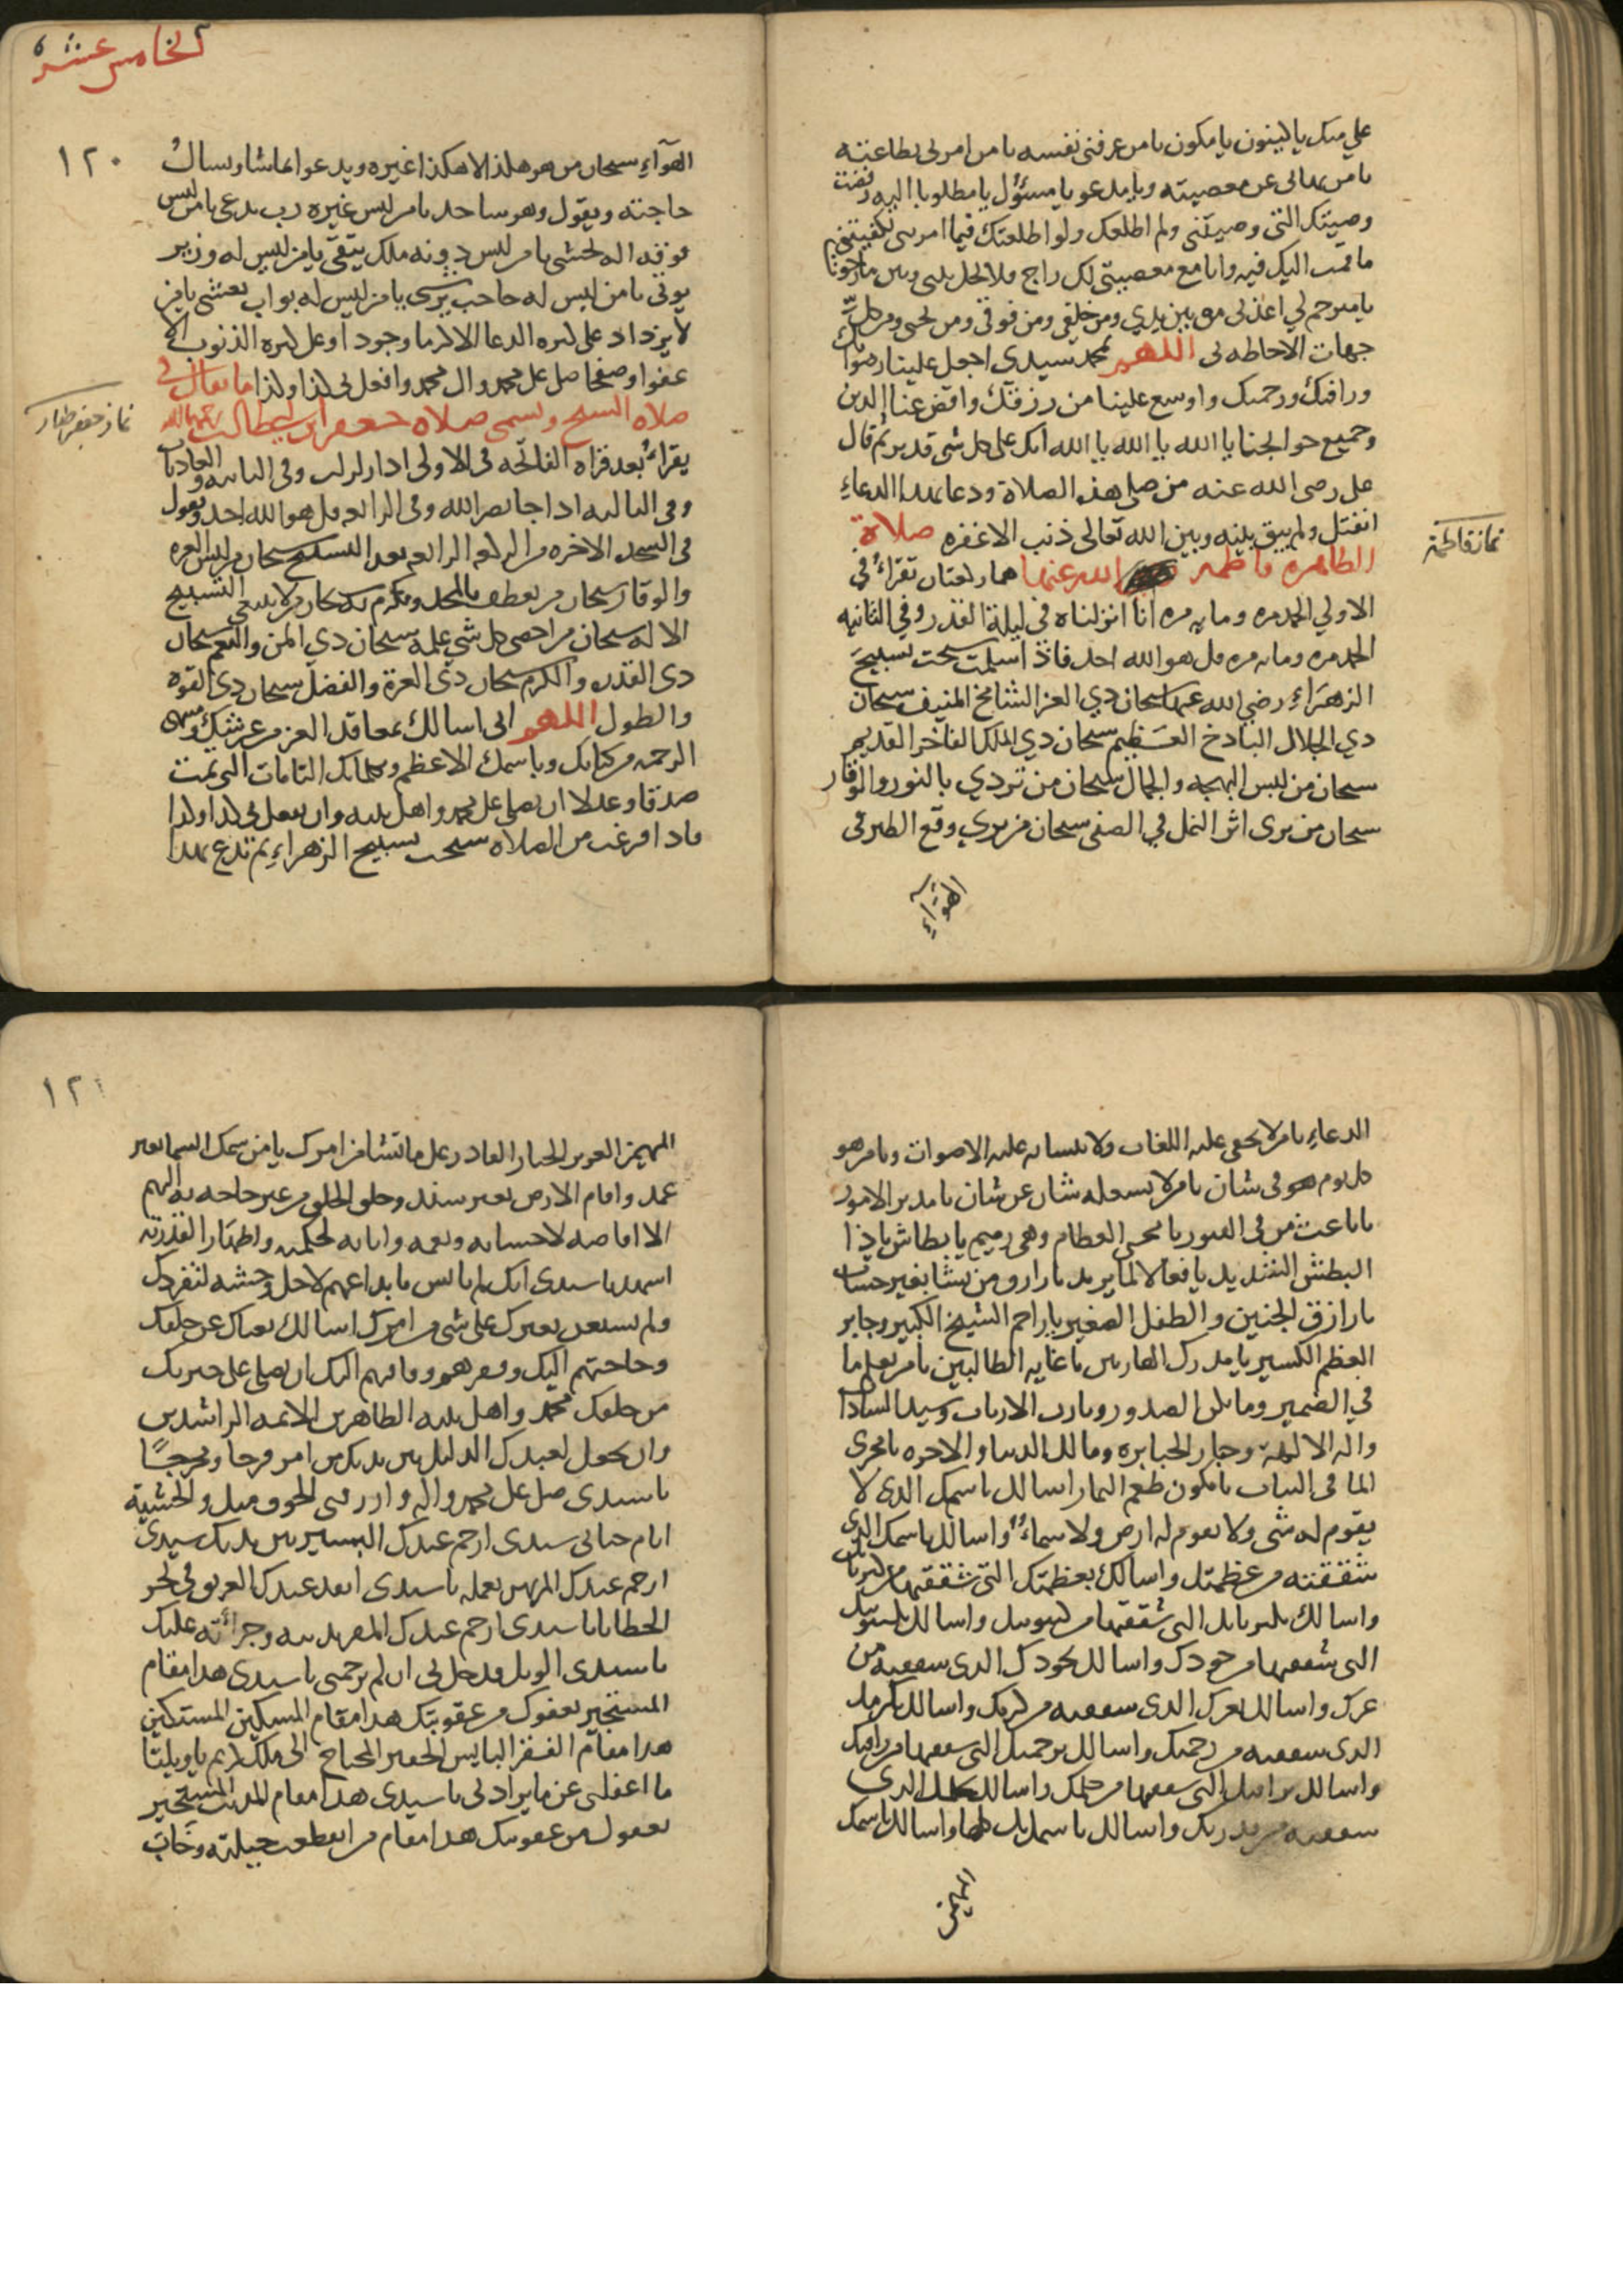 علي منك يا كينون يا مكون يا من عرفني نفسه يا من امرني بطاعته
يا من نهاني عن معصيته ويا مدعو يا مسؤل يا مطلوبا اليه رفضت
وصيتك التي وصيتني ولم اطلعك ولو اطلعتك فيما امرتني لكفيتني
ما قمت اليك فيه وانا مع معصيتي لك راج فلا تحل بيني وبين ما رجوت
يا مترحم لي اعذني من بين يدي ومن خلفي ومن فوقي ومن تحتي ومن كل
جهات الاحاطه لي اللهم بمحمد سيدي اجعل علينا رضوانك
ورافتك ورحمتك واوسع علينا من رزقك واقض عنا الدين
وجميع حوائجنا يا الله يا الله يا الله انك على كل شي قدير ثم قال
على رضى الله عنه من صلى هذه الصلاة ودعا بهذا الدعاء
انفتل ولم يبق بينه وبين الله تعالى ذنب الا غفره صلاة
الطاهره فاطمه الله عنها هما ركعتان تقراء في
الاولي الحمد مره ومايه مره انا انزلناه في ليلة القدر وفي الثانيه
الحمد مره ومايه مره قل هو الله احد فاذا سلمت سبحت تسبيح
الزهراء رضي الله عنها سبحان ذي العز الشامخ المنيف سبحان
ذي الجلال الباذخ العظيم سبحان ذي الملك الفاخر القديم
سبحان من لبس البهجه والجمال سبحان من تردي بالنور والوقار
سبحان من يرى اثر النمل في الصفى سبحان من يري وقع الطير في
الهواء
نماز فاطمة
الخامس عشره
١٢٠
الهوآء سبحان من هو هكذا لا هكذا غيره ويدعو بما شا ويسال
حاجته ويقول وهو ساجد يا من ليس غيره رب يدعى يا من ليس
فوقه اله يخشى يا من ليس دونه ملك يتقى يا من ليس له وزير
يوتى يا من ليس له حاجب يرشى يا من ليس له بواب يغشى يا من
لا يزداد على كثره الدعا الا كرما وجودا وعلى كثره الذنوب الا
عفوا وصفحا صل على محمد وال محمد وافعل بي كذا وكذا ما يقال في
صلاه التسبيح وتسمى صلاه جعفر ابن ابي طالب
يقراء بعد قراه الفاتحه في الاولى اذا زلزلت وفي الثانيه والعاديات
وفي الثالثه اذا جا نصر الله وفي الرابعه قل هو الله احد ويقول
في السجده الاخره من الركعه الرابعه بعد التسبيح سبحان من لبس العزه
والوقار سبحان من تعطف بالمجد وتكرم به سبحان من لا ينبغي التسبيح
الا له سبحان من احصى كل شي علمه سبحان ذي المن والنعم سبحان
ذي القدره والكرم سبحان ذي العزة والفضل سبحان ذي القوه
والطول اللهم اني اسالك بمعاقد العز من عرشك ومنتهى
الرحمه من كتابك وباسمك الاعظم وكلماتك التامات التي تمت
صدقا وعدلا ان تصلي على محمد واهل بيته وان تفعل بي كذا وكذا
فاذا فرغت من الصلاه سبحت تسبيح الزهراء ثم تدع بهذا
نماز جعفر طيار
الدعاء يا من لا يخفى عليه اللغات ولا يتشابه عليه الاصوات ويا من هو
كل يوم هو في شان يا من لا يشغله شان عن شان يا مدبر الامور
يا باعث من في القبور يا محيي العظام وهي رميم يا بطاش يا ذا
البطش الشديد يا فعالا لما يريد يا رازق من يشا بغير حساب
يا رازق الجنين والطفل الصغير يا راحم الشيخ الكبير وجابر
العظم الكسير يا مدرك الهاربين يا غايه الطالبين يا من يعلم ما
في الضمير وما تكن الصدور ويا رب الارباب وسيد السادات
واله الالهة وجبار الجبابره ومالك الدنيا والاخره يا مجري
الما في النبات يا مكون طعم الثمار اسالك باسمك الذي لا
يقوم له شي ولا يقوم له ارض ولا سماء واسالك باسمك الذي
شققته من عظمتك واسالك بعظمتك التي شققتها من كبريائك
واسالك بكبريائك التي شققتها من كينونيتك واسالك بكينونيتك
التي شققتها من جودك واسالك بجودك الذي شققته من
عزك واسالك بعزك الذي شققته من كرمك واسالك بكرمك
الذي شققته من رحمتك واسالك برحمتك التي شققتها من رافتك
واسالك برافتك التي شققتها من حلمك واسالك بحلمك الذي
شققته من قدرتك واسالك باسمائك كلها واسالك باسمك
المهيمن
١٢١
المهيمن العزيز الجبار القادر على ما تشا من امرك يا من سمك السما بغير
عمد واقام الارض بغير سند وخلق الخلق من غير حاجه به اليهم
الا افاضه لاحسانه ونعمه وابانه لحكمته واظهارا لقدرته
اشهد يا سيدي انك لم تانس بابداعهم لاجل وحشه لتفردك
ولم تستعن بغيرك على شي من امرك اسالك بغناك عن خلقك
وحاجتهم اليك وفقرهم وفاقتهم اليك ان تصلي على خيرتك
من خلقك محمد واهل بيته الطاهرين الائمه الراشدين
وان تجعل لعبدك الذليل بين يديك من امره فرجا ومخرجًا
يا سيدي صل على محمد واله وارزقني الخوف منك والخشية
ايام حياتي سيدي ارحم عبدك الاسير بين يديك سيدي
ارحم عبدك المرتهن بعمله يا سيدي انقذ عبدك الغريق في بحر
الخطايا يا سيدي ارحم عبدك المقر بذنبه وجرائته عليك
يا سيدي الويل قد حل بي ان لم ترحمني يا سيدي هذا مقام
المستجير بعفوك من عقوبتك هذا مقام المسكين المستكين
هذا مقام الفقير البايس الحقير المحتاج الى ملك كريم يا ويلتا
ما اغفلني عن ما يراد لي يا سيدي هذا مقام المذنب المستجير
بعفوك من عقوبتك هذا مقام من انقطعت حيلته وخاب